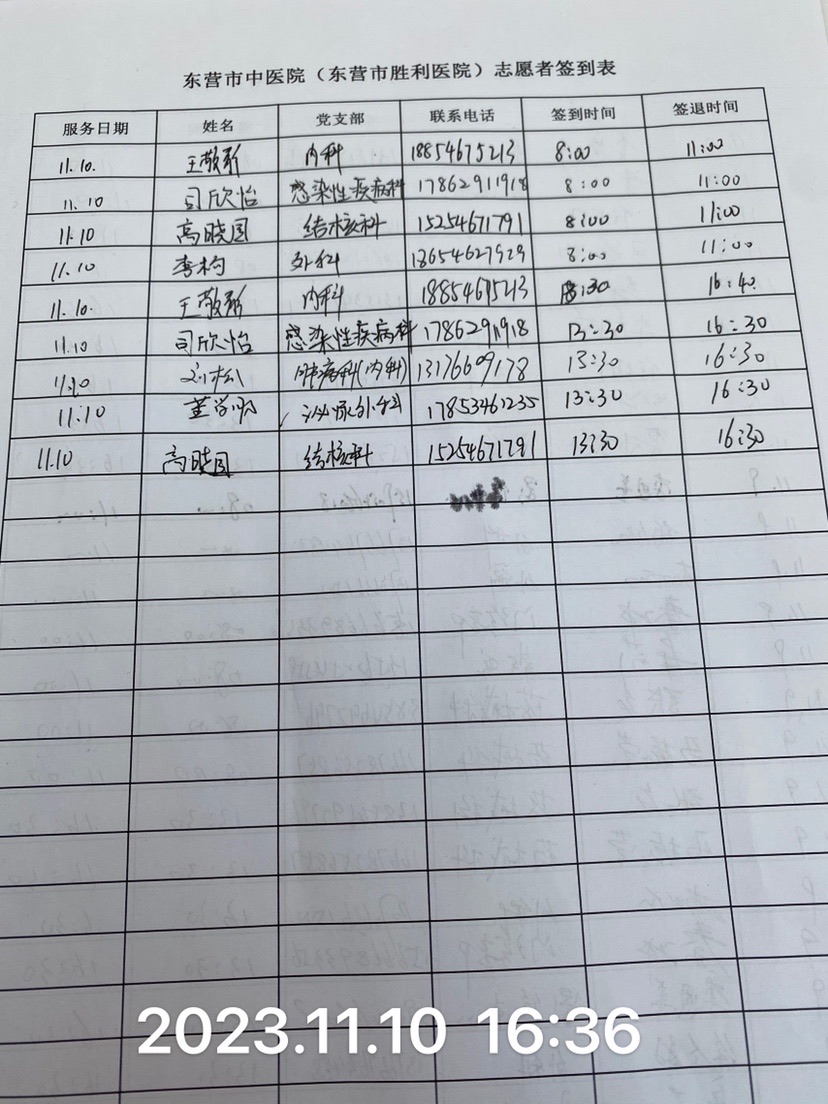 东营市中医院（东营市胜利医院）志愿者签到表
服务日期 姓名 党支部 联系电话 签到时间 签退时间
11.10. 王敬 内科 18854675213 8:00 11:00
11.10 司欣怡 感染性疾病科 17862911918 8:00 11:00
11.10 高晓国 结核科 15254671791 8:00 11:00
11.10 李构 外科 18654627929 8:00 11:00
11.10. 王敬 内科 18854675213 8:30 16:40
11.10 司欣怡 感染性疾病科 17862911918 13:30 16:30
11.10 刘松 肿瘤科(内科) 13176609178 13:30 16:30
11.10 董 泌尿外科 17853461235 13:30 16:30
11.10 高晓国 结核科 15254671791 13:30 16:30
2023.11.10 16:36